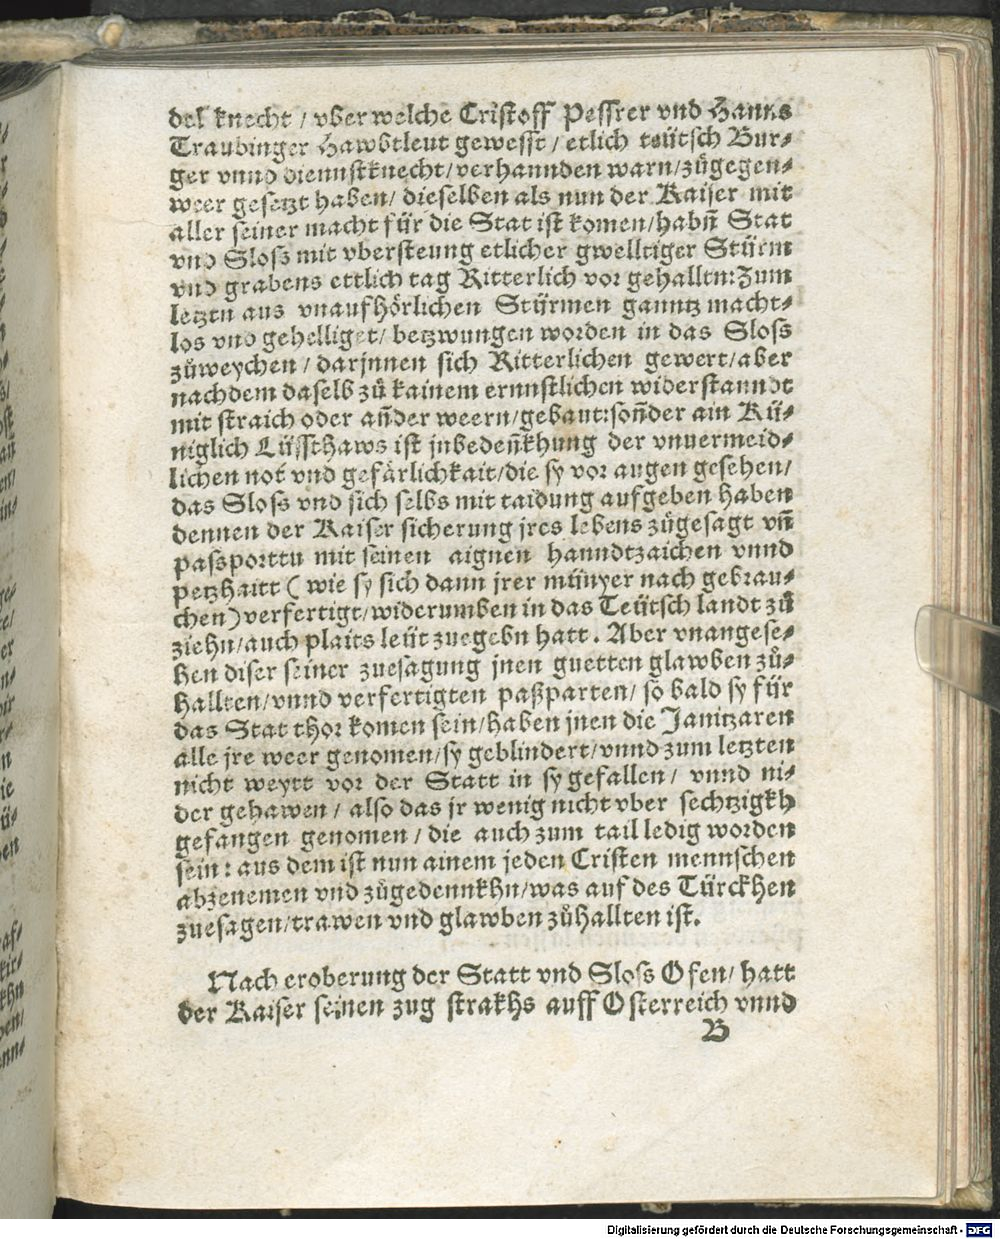 del knecht / vber welche Cristoff Pessrer vnd Hanns
Traubinger Hawbtleut gewesst / etlich teütsch Bur-
ger vnnd diennstknecht / verhannden warn / zůgegen-
weer gesetzt haben / dieselben als nun der Kaiser mit
aller seiner macht für die Stat ist komen / habñ Stat
vnd Sloss mit vbersteung etlicher gwelltiger Stürm
vnd grabens ettlich tag Ritterlich vor gehalltn: Zum
letztn aus vnaufhörlichen Stürmen ganntz macht-
los vnd gehelliget / betzwungen worden in das Sloss
zůweychen / darjnnen sich Ritterlichen gewert / aber
nachdem daselb zů kainem ernnstlichen widerstanndt
mit straich oder añder weern / gebaut: soñder ain Kü-
niglich Lüssthaws ist jnbedeñkhung der vnuermeid-
lichen not vnd gefärlichkait / die sy vor augen gesehen /
das Sloss vnd sich selbs mit taidung aufgeben haben
dennen der Kaiser sicherung jres lebens zůgesagt vñ
passporttn mit seinen aignen hanndtzaichen vnnd
petzhaitt ( wie sy sich dann jrer münyer nach gebrau-
chen) verfertigt / widerumben in das Teütsch landt zů
ziehn / auch plaits leüt zuegebn hatt. Aber vnangese-
hen diser seiner zuesagung jnen guetten glawben zů-
hallten / vnnd verfertigten paßparten / so bald sy für
das Stat thor komen sein / haben jnen die Janitzaren
alle jre weer genomen / sy geblindert / vnnd zum letzten
nicht weytt vor der Statt in sy gefallen / vnnd ni-
der gehawen / also das jr wenig nicht vber sechtzigkh
gefangen genomen / die auch zum tail ledig worden
sein : aus dem ist nun ainem jeden Cristen mennschen
abzenemen vnd zůgedennkhn / was auf des Türckhen
zuesagen / trawen vnd glawben zůhallten ist.
Nach eroberung der Statt vnd Sloss Ofen / hatt
der Kaiser seinen zug strakhs auff Osterreich vnnd
B
Digitalisierung gefördert durch die Deutsche Forschungsgemeinschaft - DFG